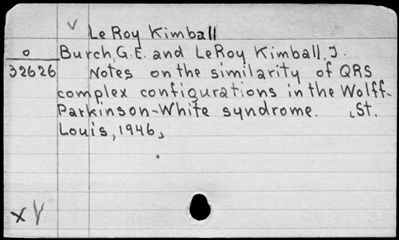 v LeRoy Kimball
o Burch, G.E. and LeRoy Kimball, J.
32626 Notes on the similarity of QRS
complex configurations in the Wolff-
Parkinson-White syndrome. St.
Louis, 1946.
x V